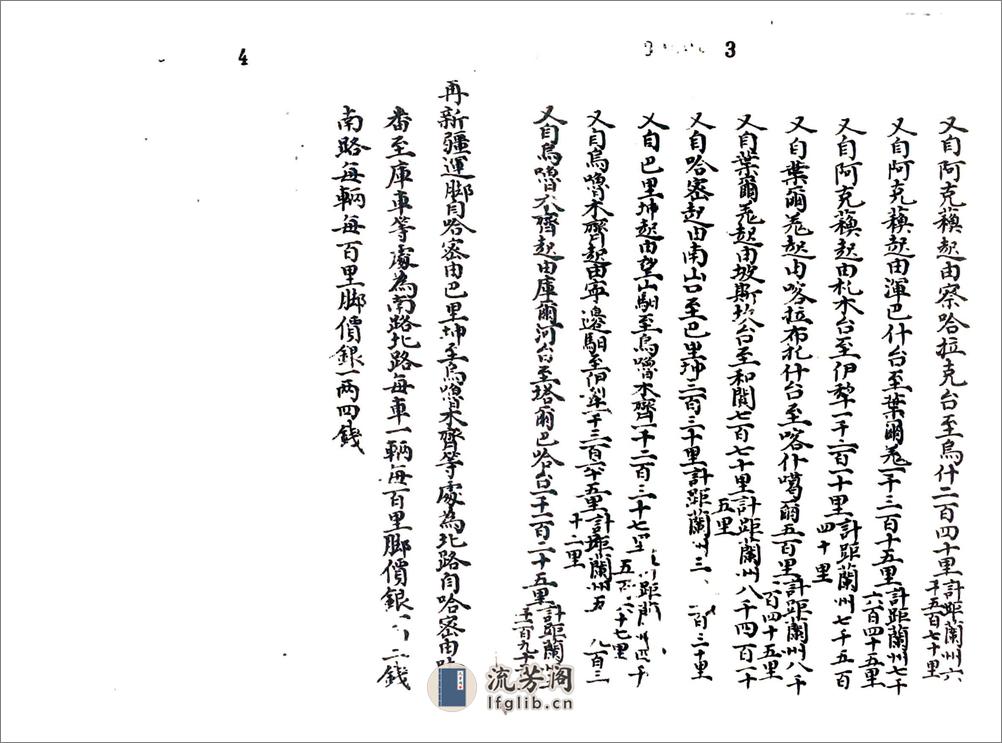 3
又自阿克蘓起由察哈拉克台至烏什二百四十里計距蘭州六千五百七十里
又自阿克蘓起由渾巴什台至葉爾羌一千三百十五里計距蘭州七千六百四十五里
又自阿克蘓起由札木台至伊犂一千二百一十里計距蘭州七千五百四十里
又自葉爾羌起由喀拉布扎什台至喀什噶爾五百里計距蘭州八千一百四十五里
又自葉爾羌起由坡斯坎台至和闐七百七十里計距蘭州八千四百一十五里
又自哈密起由南山口至巴里坤三百三十里計距蘭州三 百三十里
又自巴里坤起由望山馹至烏嚕木齊一千二百三十七里 距 州四千五百六十七里
又自烏嚕木齊起由寧邊馹至伊犂一千三百二十五里計距蘭州五 八百三十二里
又自烏嚕木齊起由庫爾河台至塔爾巴哈台一千一百二十五里計距蘭
再新疆運脚自哈密由巴里坤至烏嚕木齊等處為北路自哈密由
番至庫車等處為南路北路每車一輛每百里脚價銀一 二錢
南路每輛每百里脚價銀一两四錢
4
流芳阁
lfglib.cn